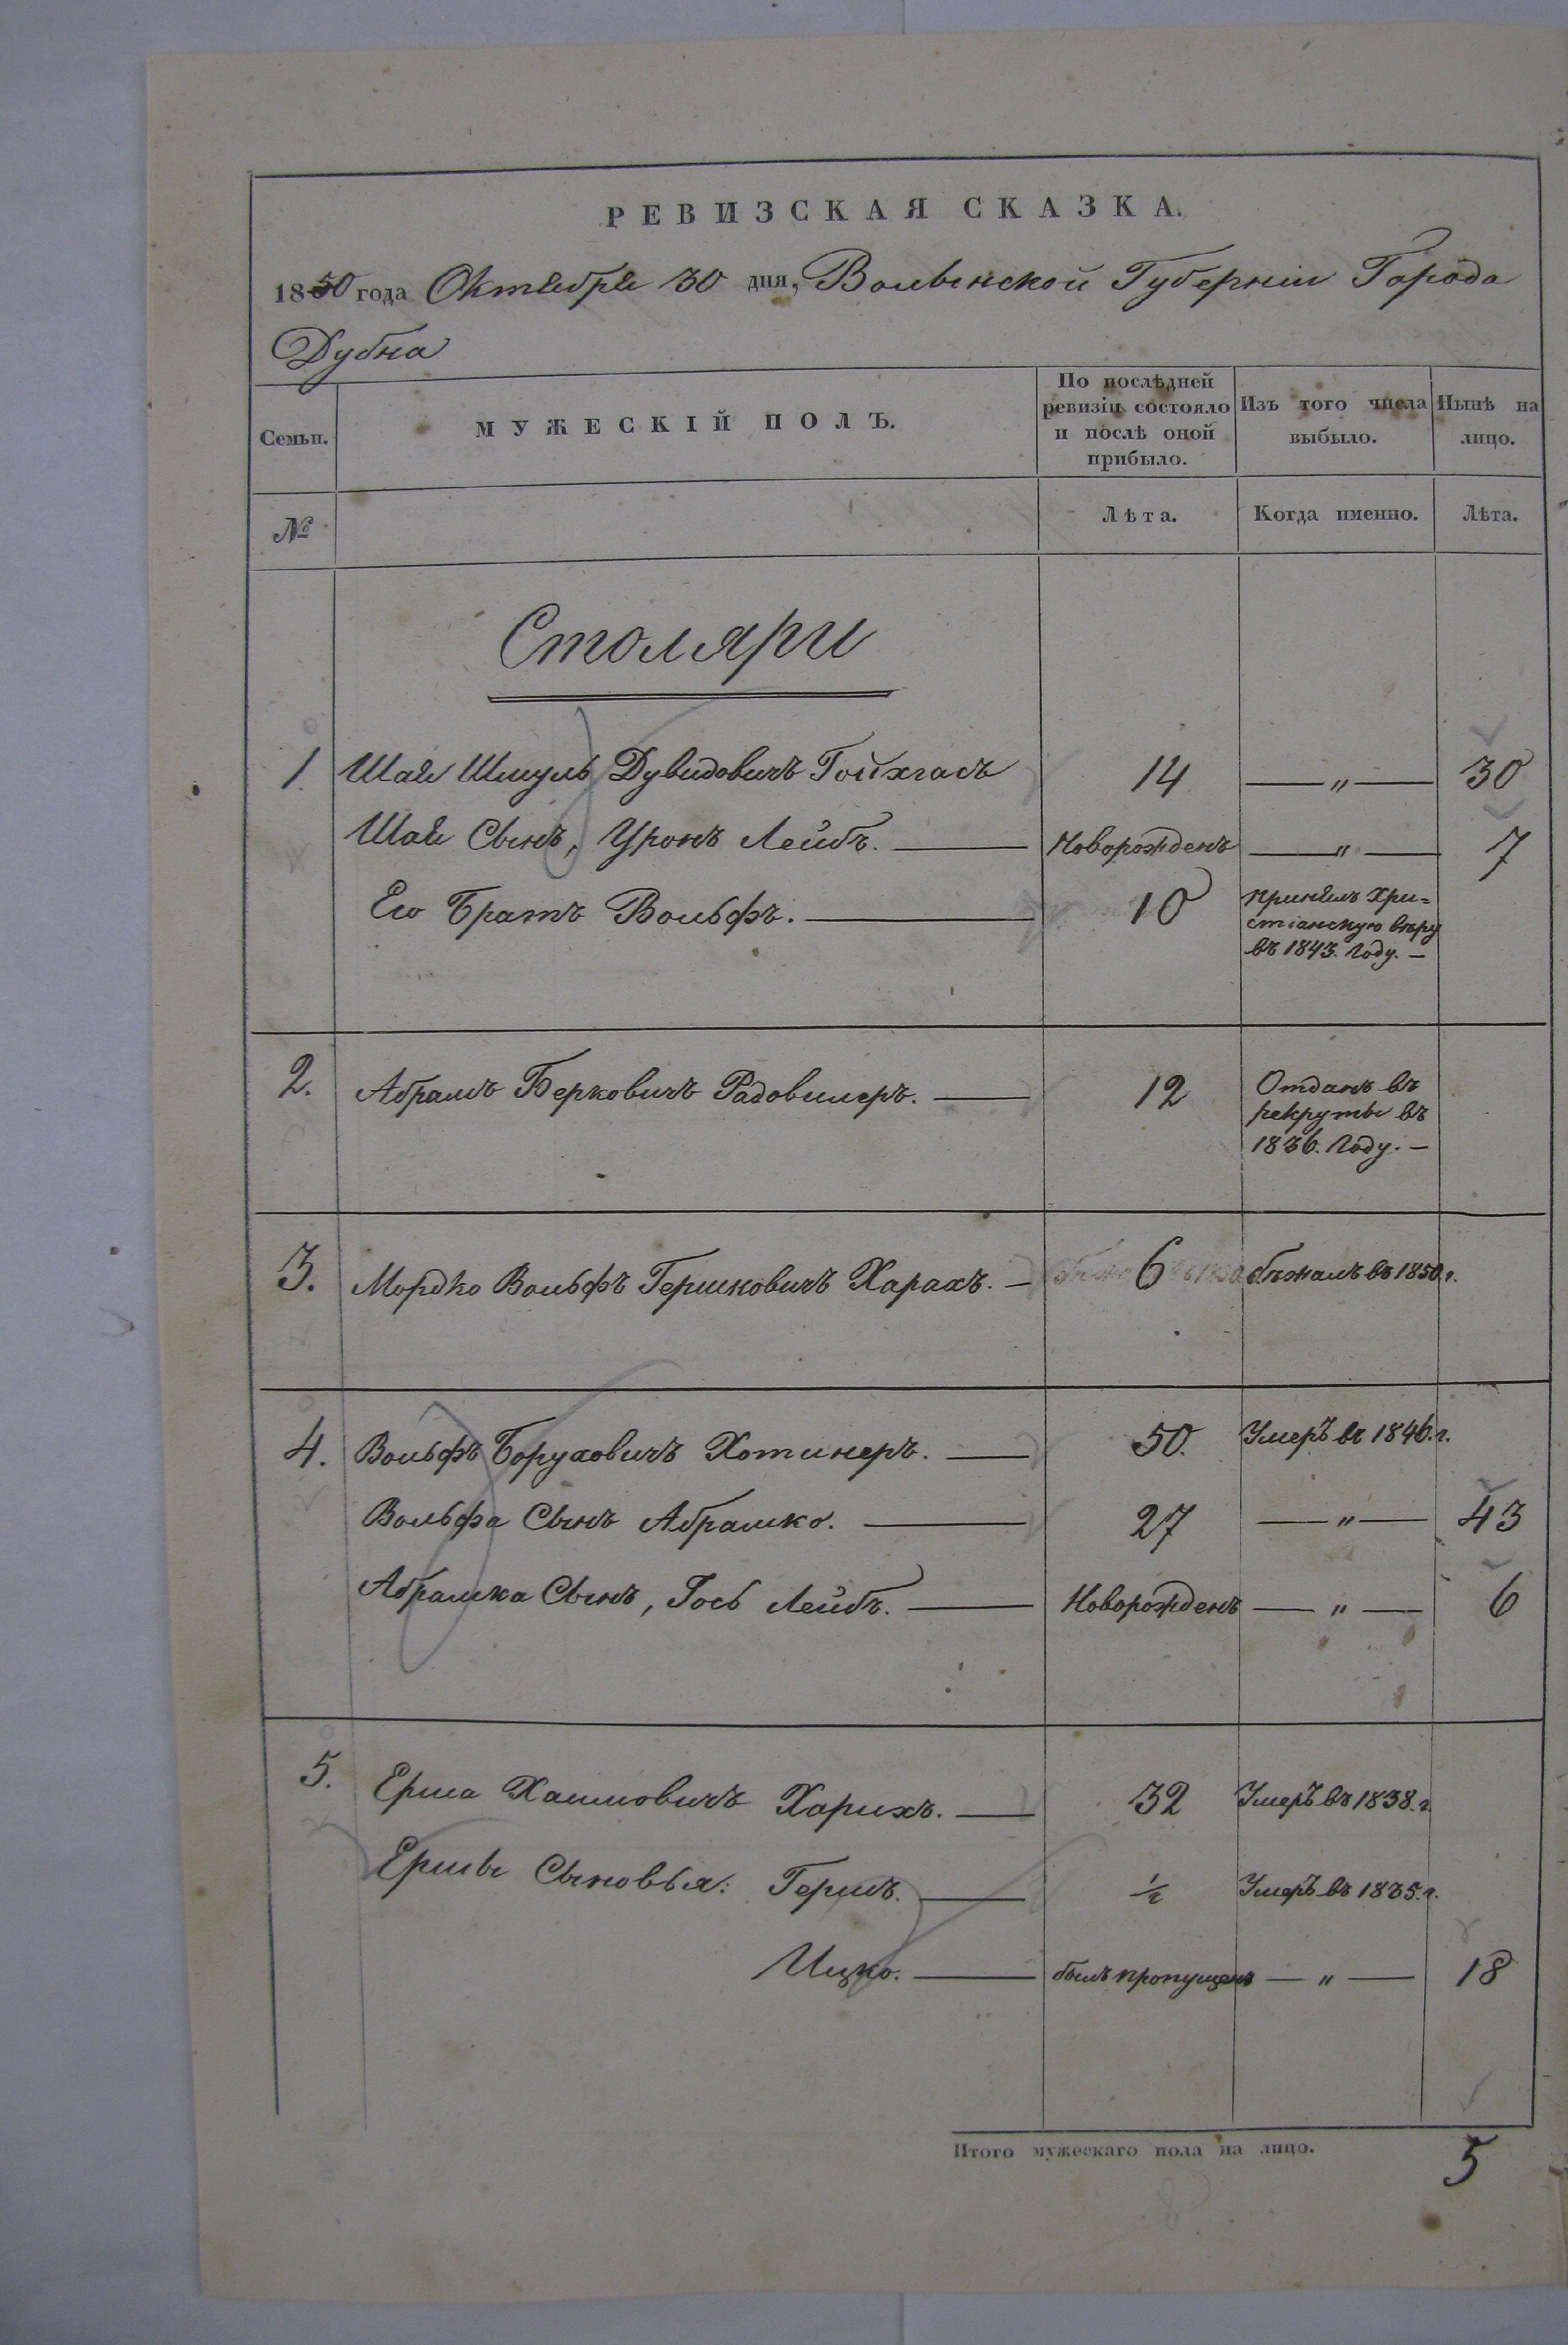 РЕВИЗСКАЯ СКАЗКА.
1850 года Октября 30 дня, Волынской Губерніи Города
Дубна
Семьи. МУЖЕСКІЙ ПОЛЪ. По послѣдней ревизіи состояло и послѣ оной прибыло. Изъ того числа выбыло. Нынѣ на лицо.
№ Лѣта. Когда именно. Лѣта.
Столяри
1. Шая Шмуль Дувидовичъ Гойхгасъ 14 — " — 30
Шаи Сынъ, Уронъ Лейбъ. — Новорожденъ — " — 7
Его Братъ Вольфъ. — 10 принялъ Хри=
стіанскую вѣру
въ 1843. Году. —
2. Абрамъ Берковичъ Радовилеръ. — 12 Отданъ въ
рекруты въ
1836. Году. —
3. Мордко Вольфъ Гершковичъ Харахъ. — 6 бѣжалъ въ 1850 г.
4. Вольфъ Боруховичъ Хотинеръ. — 50. Умеръ въ 1846. г.
Вольфа Сынъ Абрашко. — 27 — " — 43
Абрашка Сынъ, Гось Лейбъ. — Новорожденъ — " — 6
5. Ерша Хаимовичъ Харихъ. — 32 Умеръ въ 1838. г.
Ершы Сыновья: Гершъ. — 1/2 Умеръ въ 1835. г.
Ицко. — былъ пропущенъ — " — 18
Итого мужескаго пола на лицо. 5